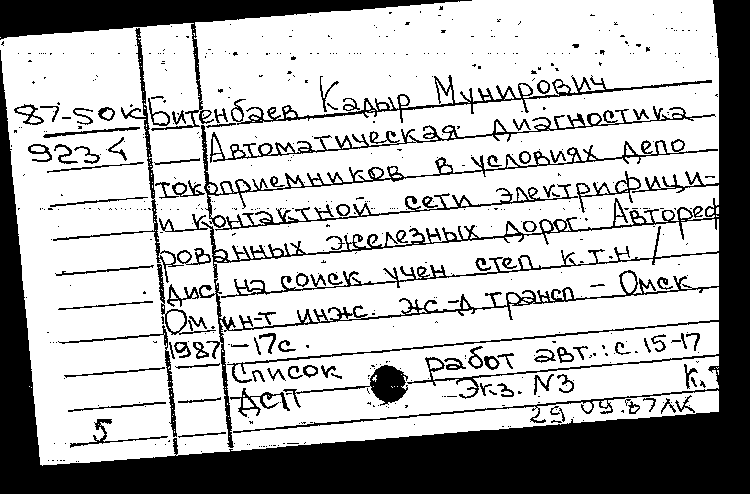 87-50к Битенбаев, Кадыр Мунирович
9234 Автоматическая диагностика
токоприемников в условиях депо
и контактной сети электрифици-
рованных железных дорог: Автореф
дис. на соиск. учен. степ. к.т.н. /
Ом. ин-т инж. ж.-д. трансп. - Омск,
1987 - 17с.
Список работ авт.: с. 15-17
ДСП Экз. N3 К.Т
5 29.09.87ЛК